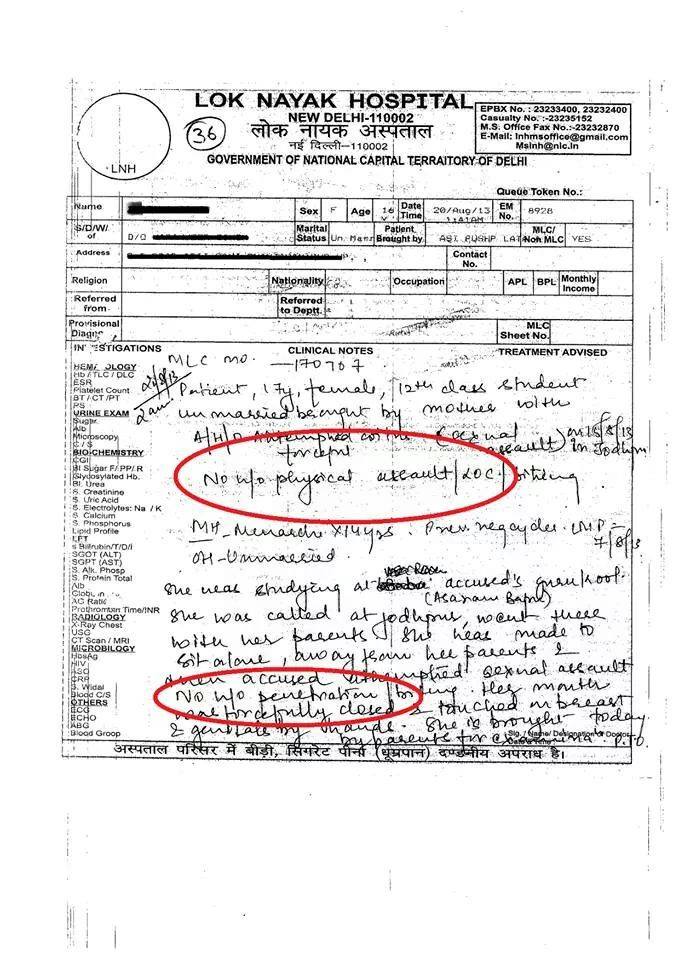 LOK NAYAK HOSPITAL
NEW DELHI-110002
लोक नायक अस्पताल
नई दिल्ली-110002
GOVERNMENT OF NATIONAL CAPITAL TERRAITORY OF DELHI
36
LNH
EPBX No. : 23233400, 23232400
Casualty No.:-23235152
M.S. Office Fax No.:-23232870
E-Mail: lnhmsoffice@gmail.com
Mslnh@nic.in
Queue Token No.:
Name Sex F Age 16 Y Date Time 20/Aug/13 1:41AM EM No. 8928
S/D/W/ of D/O Marital Status Un. Marr Patient Brought by ASI PUSHP LATA MLC/ Non MLC YES
Address Contact No.
Religion Nationality Occupation APL BPL Monthly Income
Referred from Referred to Deptt.
Provisional Diagn. MLC Sheet No.
INVESTIGATIONS CLINICAL NOTES TREATMENT ADVISED
HEMATOLOGY
Hb / TLC / DLC
ESR
Platelet Count
BT / CT / PT
PS
URINE EXAM
Sugar
Alb
Microscopy
C / S
BIO-CHEMISTRY
CGI
Bl Sugar F/ PP/ R
Glycosylated Hb.
Bl. Urea
S. Creatinine
S. Uric Acid
S. Electrolytes: Na / K
S. Calcium
S. Phosphorus
Lipid Profile
LFT
s Bilirubin/T/D/I
SGOT (ALT)
SGPT (AST)
S. Alk. Phosp
S. Protein Total
Alb
AG Ratio
Prothromban Time/INR
RADIOLOGY
X-Ray Chest
USG
CT Scan / MRI
MICROBIOLOGY
HbsAg
HIV
ASO
CRP
S. Widal
Blood C/S
OTHERS
ECG
ECHO
ABG
Blood Group
MLC no. - 170767
20/8/13
2am
Patient, 17y, female, 12th class student
unmarried brought by mother with
A/H/O attempted sexual assault on 15/8/13 in Jodhpur
No h/o physical assault/LOC/biting
MH - Menarche x 14yrs. Prev. reg cycles. LMP - 7/8/13
OH - Unmarried.
She was studying at accused's gurukool.
(Asaram Bapu)
She was called at jodhpur, went there
with her parents. She was made to
sit alone, away from her parents &
then accused attempted sexual assault
No h/o penetration/biting. Her mouth
was forcefully closed & touched on breast
& genitals by hands. She is brought today
by parents for P.T.O
Sig. / Name/ Designation of Doctor
अस्पताल परिसर में बीड़ी, सिगरेट पीना (धूम्रपान) दण्डनीय अपराध है।